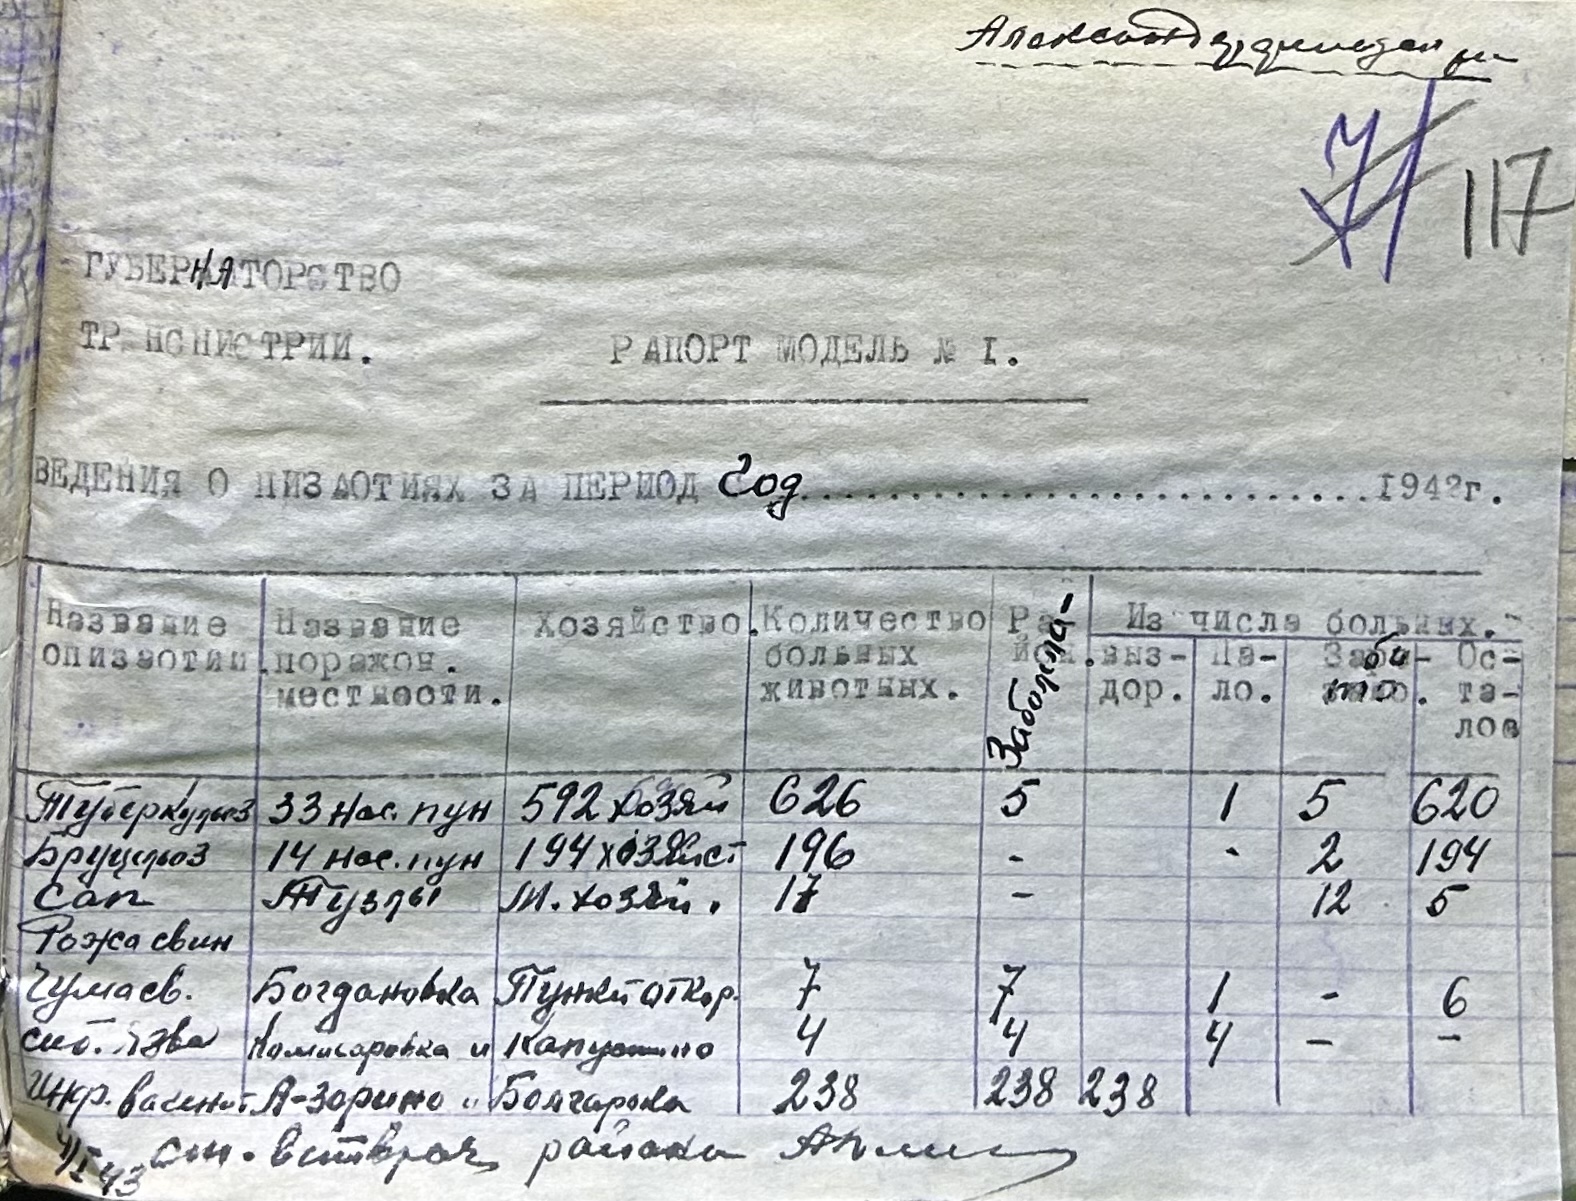 71 117
ГУБЕРНАТОРСТВО
ТРАНСНИСТРИИ.
РАПОРТ МОДЕЛЬ № I.
ВЕДЕНИЯ О ПИЗАОТИЯХ ЗА ПЕРИОД год.............................1942г.
Название опизаотии. Название поражон. местности. Хозяйство. Количество больных животных. Район. Заболела- Из числа больных. выз-дор. Па-ло. Заби-то. Ос-та-лов
Туберкулез 33 нас. пун 592 хозяй 626 5 1 5 620
Бруцлоз 14 нас. пун 194 хозяйст 196 - - 2 194
Сап Тузлы М. хозяй. 17 - 12 5
Рожа свин
Чума св. Богдановка Пункт откор. 7 7 1 - 6
сиб. язва Комисаровка и Капустино 4 4 4 - -
Инф. вагинит А-зорино и Болгарка 238 238 238
4/I 43 ст. ветврач района